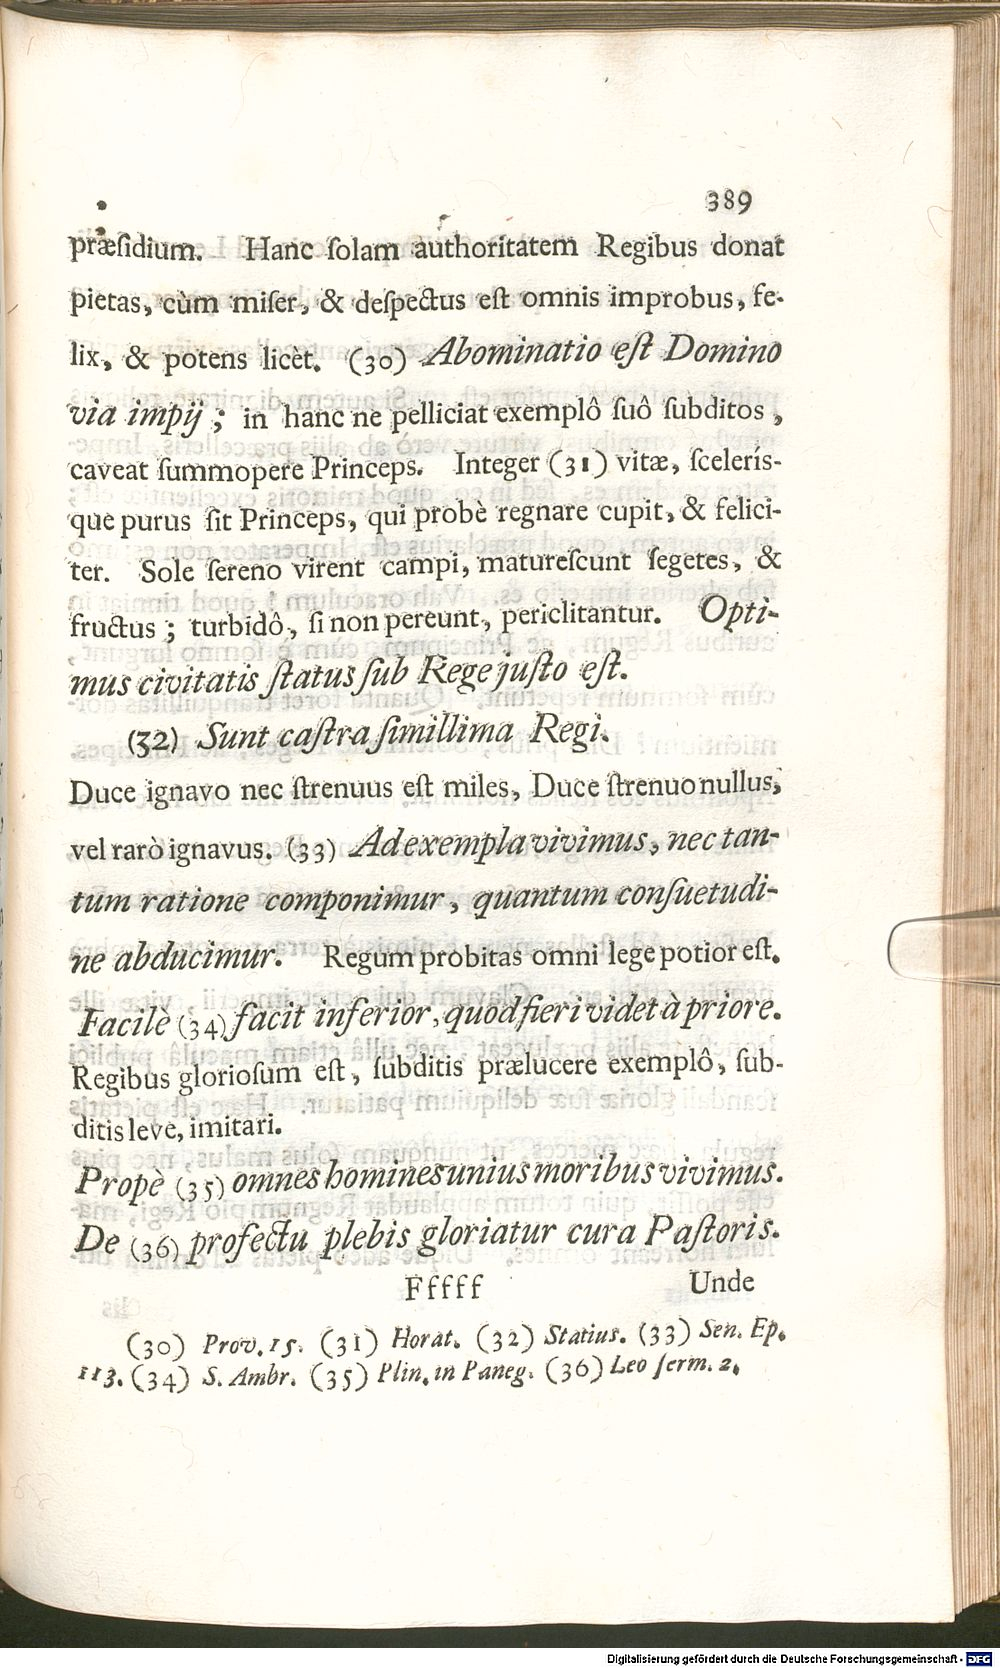 389
præſidium. Hanc ſolam authoritatem Regibus donat
pietas, cùm miſer, & deſpectus eſt omnis improbus, fe-
lix, & potens licèt. (30) Abominatio eſt Domino
via impij; in hanc ne pelliciat exemplô ſuô ſubditos,
caveat ſummopere Princeps. Integer (31) vitæ, ſceleris-
que purus ſit Princeps, qui probè regnare cupit, & felici-
ter. Sole ſereno virent campi, matureſcunt ſegetes, &
fructus; turbidô, ſi non pereunt, periclitantur. Opti-
mus civitatis ſtatus ſub Rege juſto eſt.
(32) Sunt caſtra ſimillima Regi.
Duce ignavo nec ſtrenuus eſt miles, Duce ſtrenuo nullus,
vel rarò ignavus. (33) Ad exempla vivimus, nec tan-
tum ratione componimur, quantum conſuetudi-
ne abducimur. Regum probitas omni lege potior eſt.
Facilè (34) facit inferior, quod fieri videt à priore.
Regibus glorioſum eſt, ſubditis prælucere exemplô, ſub-
ditis leve, imitari.
Propè (35) omnes homines unius moribus vivimus.
De (36) profectu plebis gloriatur cura Paſtoris.
Fffff Unde
(30) Prov. 15. (31) Horat. (32) Statius. (33) Sen. Ep.
113. (34) S. Ambr. (35) Plin. in Paneg. (36) Leo ſerm. 2.
Digitalisierung gefördert durch die Deutsche Forschungsgemeinschaft - DFG